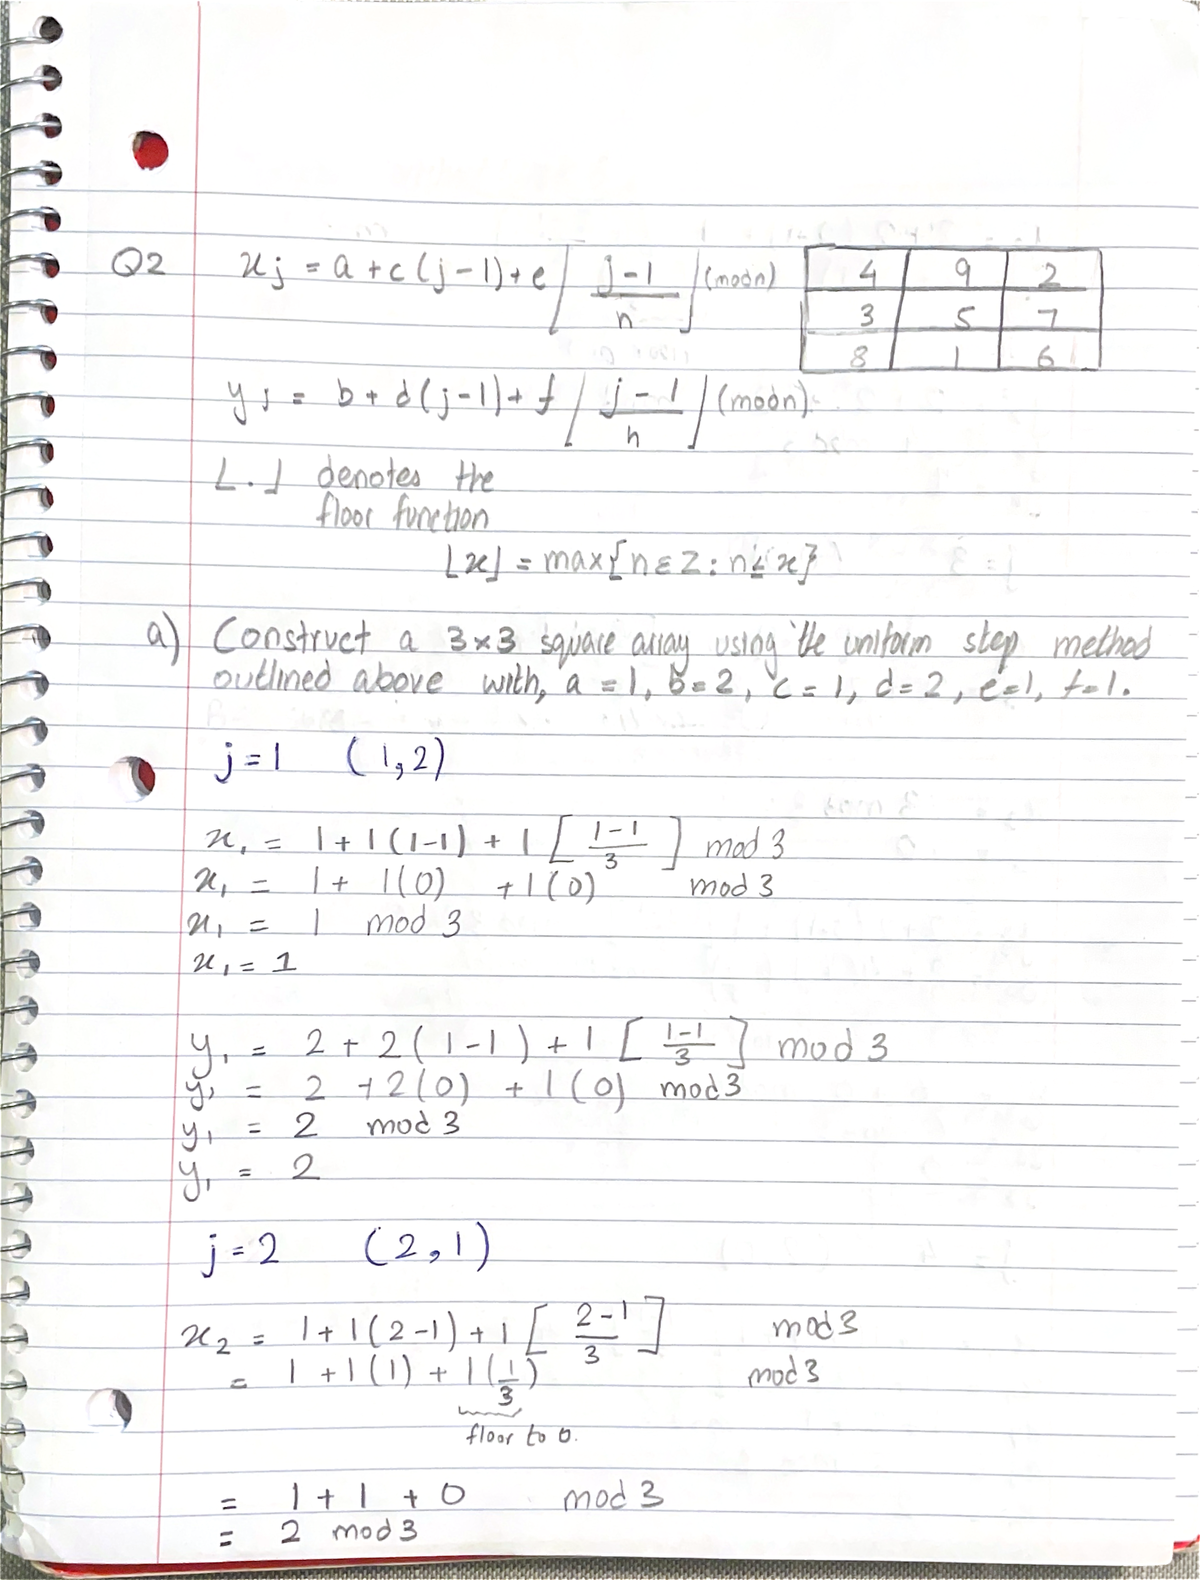 Q2 xj = a + c(j-1) + e⌊(j-1)/n⌋ (modn)
4 9 2
3 5 7
8 1 6
yj = b + d(j-1) + f⌊(j-1)/n⌋ (modn)
⌊.⌋ denotes the
floor function
⌊x⌋ = max{n ε Z : n ≤ x}
a) Construct a 3×3 square array using the uniform step method
outlined above with, a = 1, b = 2, c = 1, d = 2, e = 1, f = 1.
j = 1 (1,2)
x₁ = 1 + 1(1-1) + 1[(1-1)/3] mod 3
x₁ = 1 + 1(0) + 1(0) mod 3
x₁ = 1 mod 3
x₁ = 1
y₁ = 2 + 2(1-1) + 1[(1-1)/3] mod 3
y₁ = 2 + 2(0) + 1(0) mod 3
y₁ = 2 mod 3
y₁ = 2
j = 2 (2,1)
x₂ = 1 + 1(2-1) + 1[(2-1)/3] mod 3
= 1 + 1(1) + 1(1/3) mod 3
floor to 0.
= 1 + 1 + 0 mod 3
= 2 mod 3